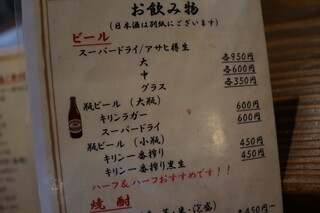 お飲み物
(日本酒は別紙にございます)
ビール
スーパードライ/アサヒ樽生
大 各950円
中 各600円
グラス 各350円
瓶ビール (大瓶)
キリンラガー 600円
スーパードライ 600円
瓶ビール (小瓶)
キリン一番搾り 450円
キリン一番搾り黒生 450円
ハーフ&ハーフおすすめです!!
焼酎
米・泡盛)
450円~